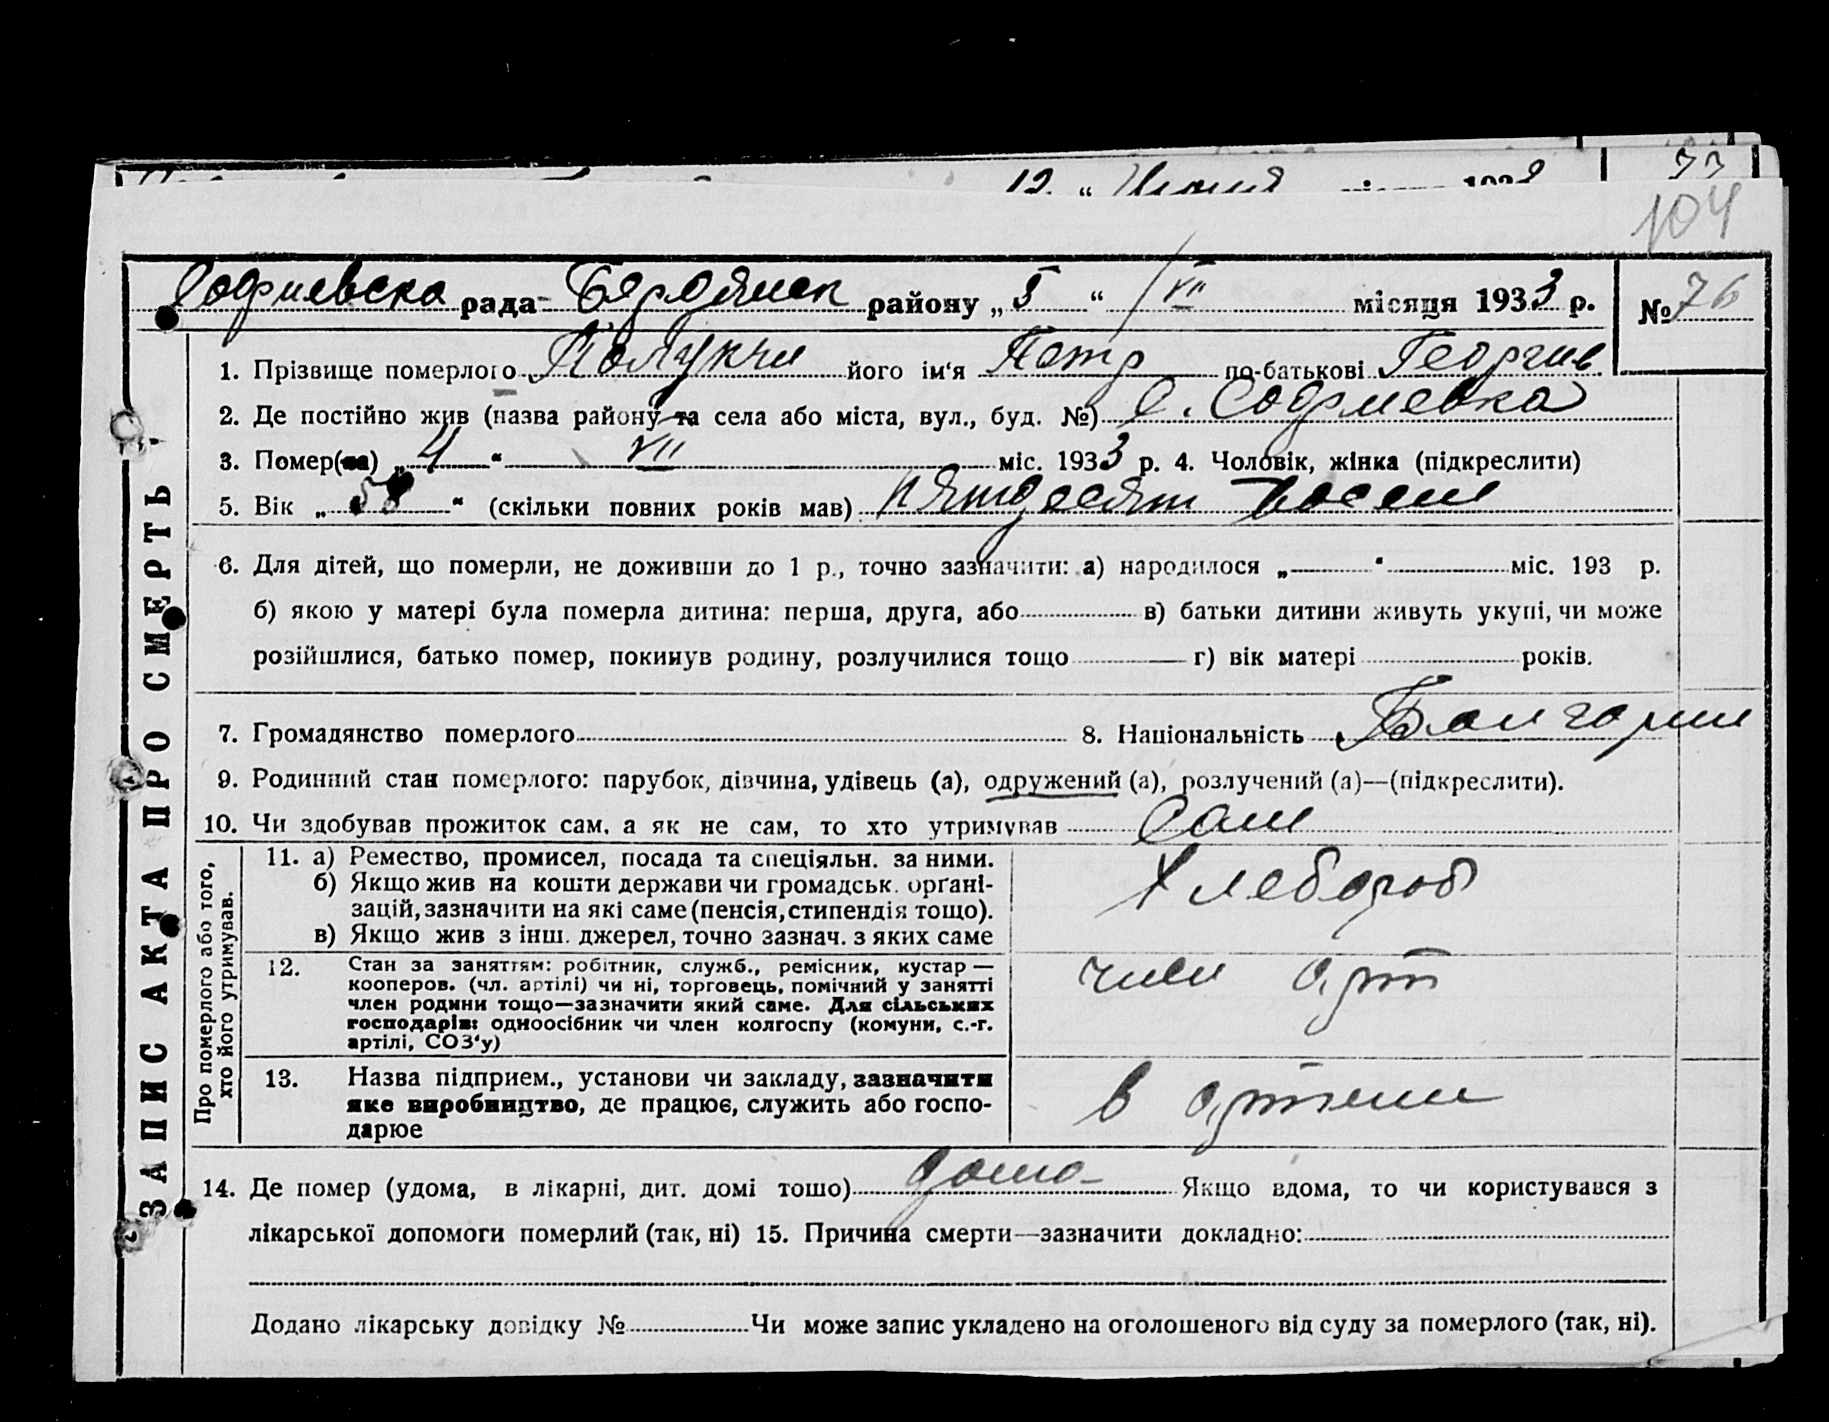 12 " Июня міс 193
104
Софиевска рада Бердянск району „5" VII місяця 1933 р. № 76
1. Прізвище померлого його ім'я Петр по-батькові Георгив
2. Де постійно жив (назва району та села або міста, вул., буд. №) С. Софиевка
3. Помер(ла) „4" VII міс. 1933 р. 4. Чоловік, жінка (підкреслити)
5. Вік „58" (скільки повних років мав) пятдесят восем
6. Для дітей, що померли, не доживши до 1 р., точно зазначити: а) народилося „ " міс. 193 р.
б) якою у матері була померла дитина: перша, друга, або в) батьки дитини живуть укупі, чи може
розійшлися, батько помер, покинув родину, розлучилися тощо г) вік матері років.
7. Громадянство померлого 8. Національність Болгарин
9. Родинний стан померлого: парубок, дівчина, удівець (а), одружений (а), розлучений (а)—(підкреслити).
10. Чи здобував прожиток сам, а як не сам, то хто утримував Сам
ЗАПИС АКТА ПРО СМЕРТЬ
Про померлого або того,
хто його утримував.
11. а) Ремество, промисел, посада та спеціяльн. за ними.
б) Якщо жив на кошти держави чи громадськ. орґані-
зацій, зазначити на які саме (пенсія, стипендія тощо).
в) Якщо жив з інш. джерел, точно зазнач. з яких саме
Хлебороб
12. Стан за заняттям: робітник, служб., ремісник, кустар —
кооперов. (чл. артілі) чи ні, торговець, помічний у занятті
член родини тощо—зазначити який саме. Для сільських
господарів: одноосібник чи член колгоспу (комуни, с.-г.
артілі, СОЗ'у)
член арт
13. Назва підприєм., установи чи закладу, зазначити
яке виробництво, де працює, служить або госпо-
дарює
в артели
14. Де помер (удома, в лікарні, дит. домі тощо) дома Якщо вдома, то чи користувався з
лікарської допомоги померлий (так, ні) 15. Причина смерти—зазначити докладно:
Додано лікарську довідку № Чи може запис укладено на оголошеного від суду за померлого (так, ні).